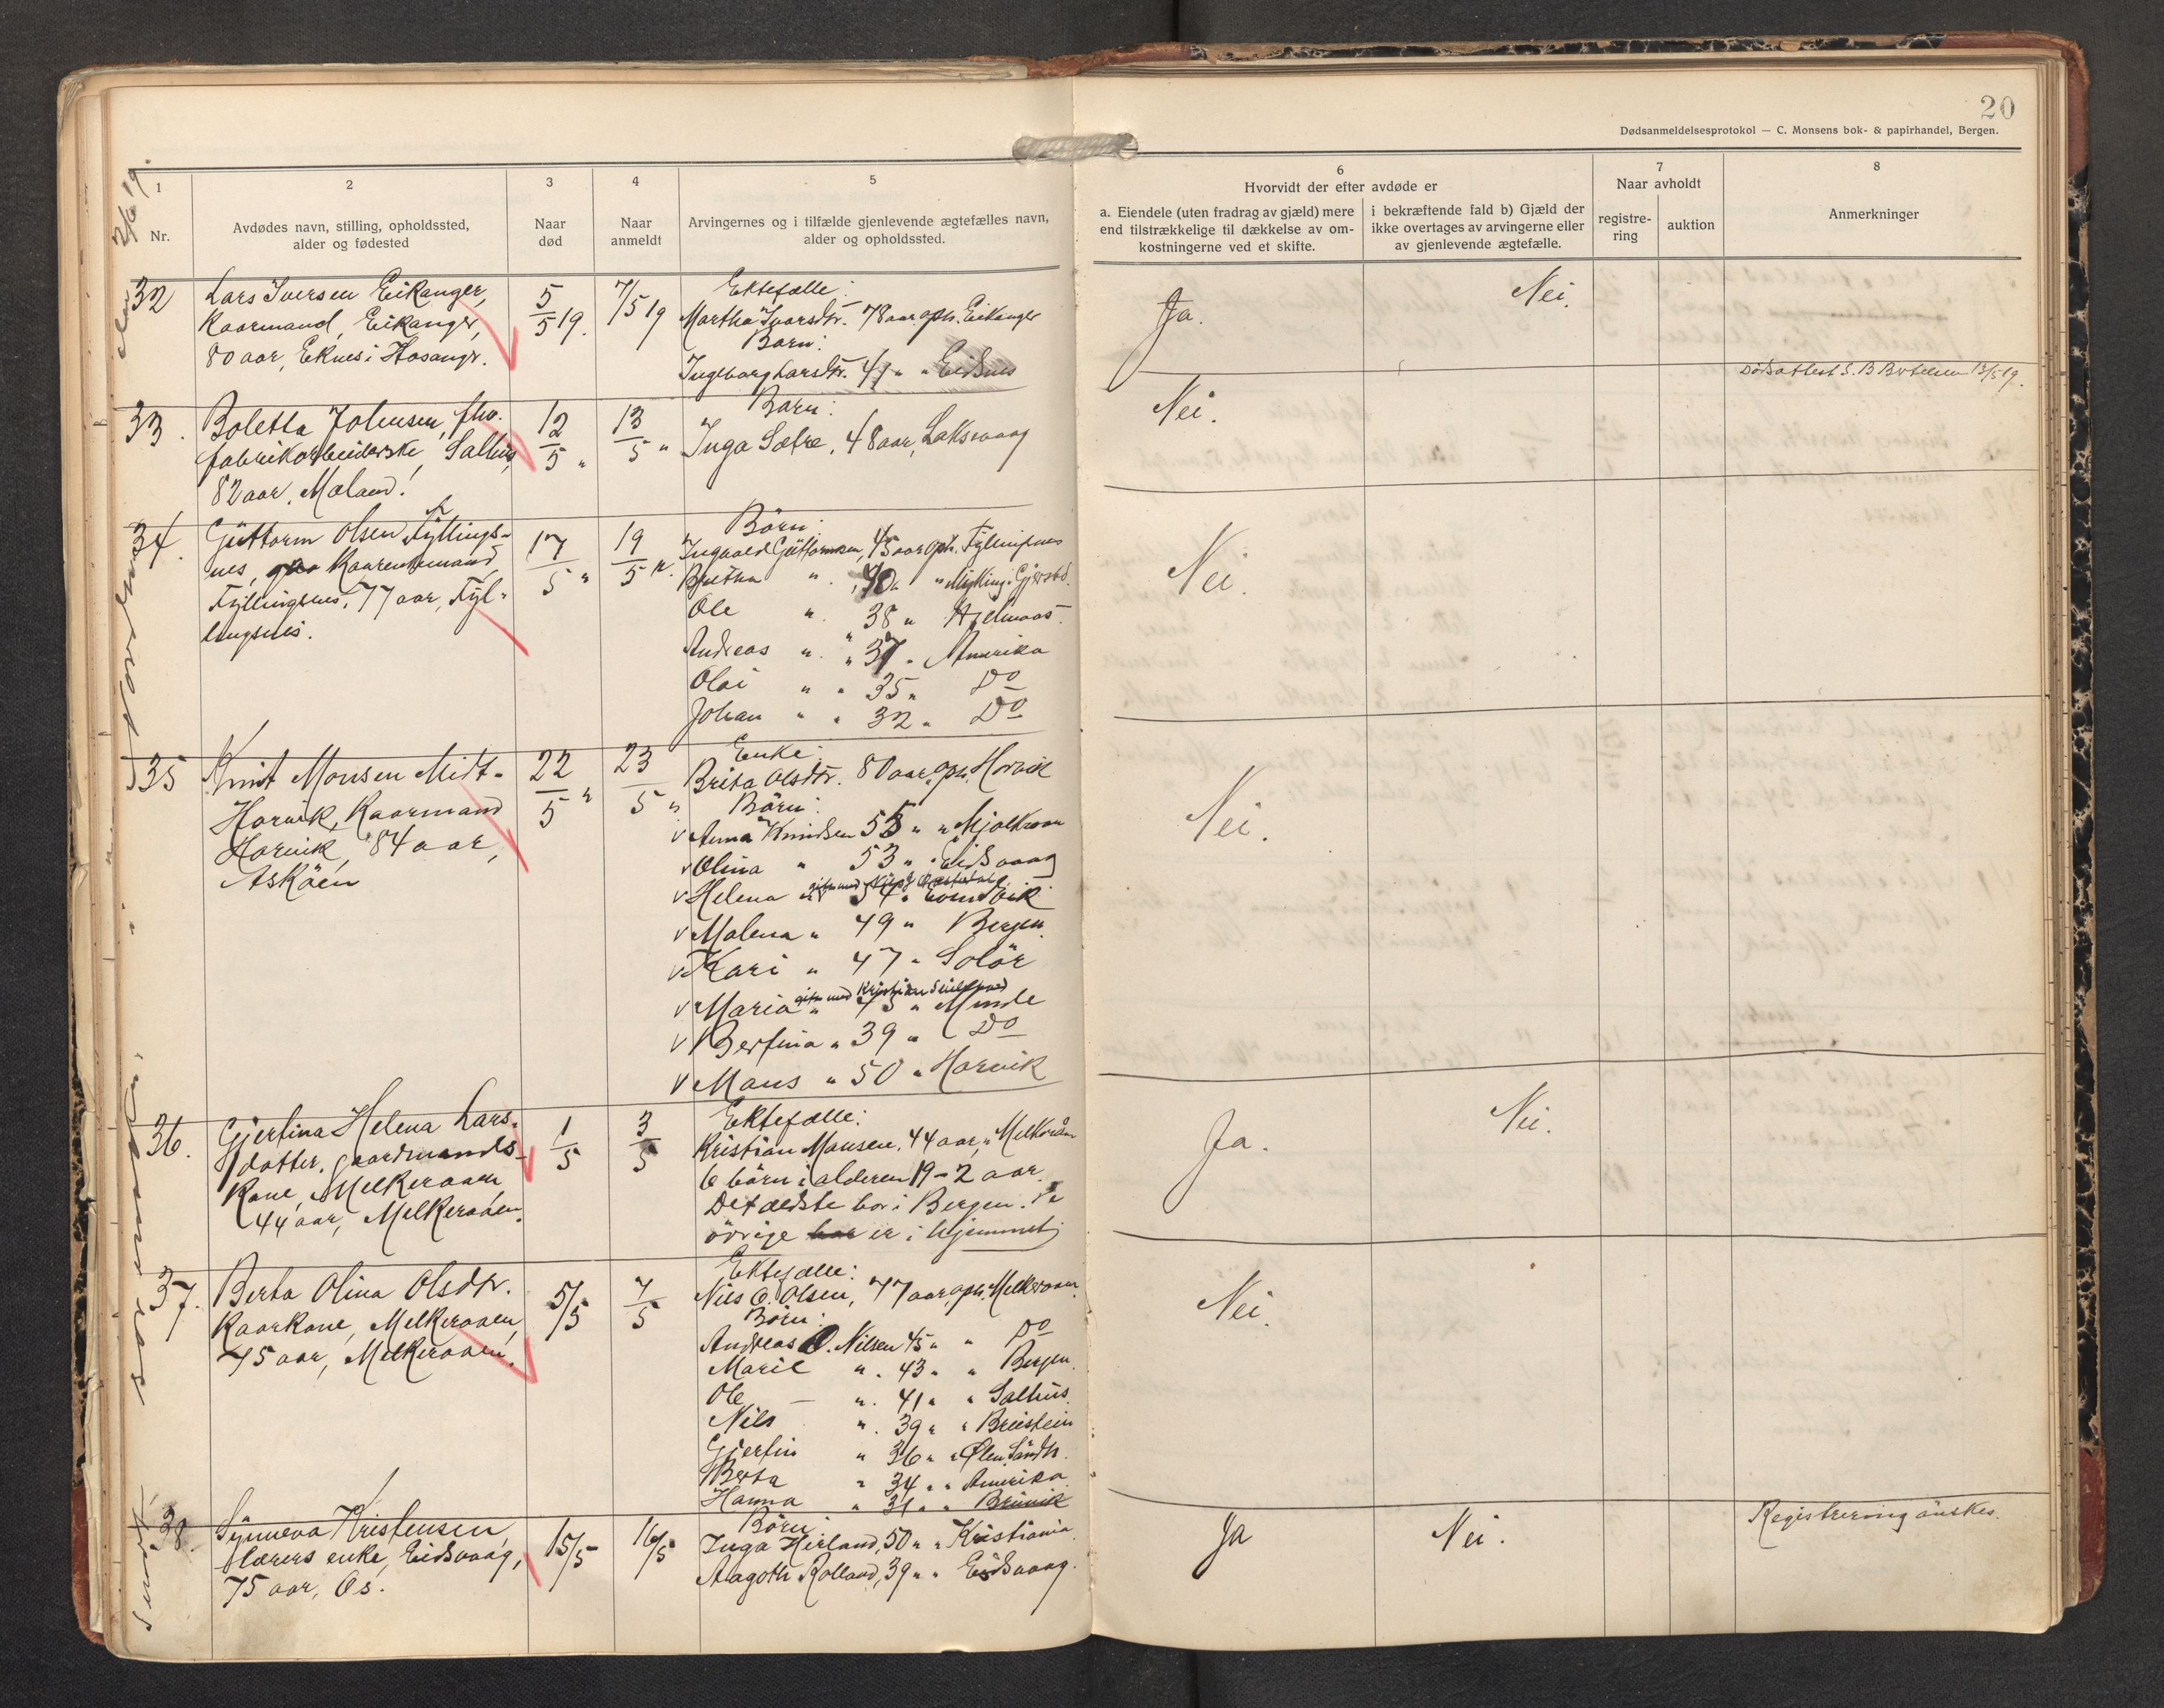 20
Dødsanmeldelsesprotokol — C. Monsens bok- & papirhandel, Bergen.
1
Nr.
2
Avdødes navn, stilling, opholdssted,
alder og fødested
3
Naar
død
4
Naar
anmeldt
5
Arvingernes og i tilfælde gjenlevende ægtefælles navn,
alder og opholdssted.
6
Hvorvidt der efter avdøde er
a. Eiendele (uten fradrag av gjæld) mere
end tilstrækkelige til dækkelse av om-
kostningerne ved et skifte.
i bekræftende fald b) Gjæld der
ikke overtages av arvingerne eller
av gjenlevende ægtefælle.
7
Naar avholdt
registre-
ring
auktion
8
Anmerkninger
32
Lars Iversen Eikanger,
Kaarmand, Eikanger,
80 aar, Eknes i Hosangr.
5/5 19.
7/5 19
Ektefælle:
Martha Ivarsdtr. 78 aar oph. Eikanger
Barn:
Ingeborg Larsdtr. 41 " " Eidsnes
Ja.
Nei.
33.
Boletta Johnsen, fhv.
fabrikarbeiderske, Salhus,
82 aar, Maland.
12/5 "
13/5 "
Barn:
Inga Sætre, 48 aar, Laksevaag
Nei.
Dødsattest S. B 13/5 19.
34.
Guttorm Olsen Fyllings-
nes, Kaarmand,
Fyllingsnes, 77 aar, Fyl-
lingsnes.
17/5 "
19/5 "
Børn:
Ingvald Guttormsen, 45 aar oph. Fyllingsnes
Brytha " 40 " " Myking i Gjerstd.
Ole " " 38 " Hjelmaas
Andreas " " 37 " Amerika
Olai " " 35 " Do
Johan " " 32 " Do
Nei.
35
Knut Monsen Midt-
Horvik, Kaarmand
Horvik, 84 aar,
Askøen
22/5 "
23/5 "
Enke:
Brita Olsdtr. 80 aar oph. Horvik
Børn:
v Anna Knudsen 55 " " Mjølkraaen
v Olina " 53 " " Eidsvaag
gift med
v Helena " 51 " Eivindvik
v Malena " 49 " Bergen.
v Kari " 47 " Solør
gift med Kristian
v Maria " 43 " Minde
v Bertina " 39 " Do
v Mons " 50 " Horvik
Nei.
36.
Gjertina Helena Lars-
datter, gaardmands-
Kone, Melkeraaen
44 aar, Melkeraaen.
1/5
3/5
Ektefælle:
Kristian Monsen, 44 aar, " Melkeråen
6 børn i alderen 19-2 aar.
Det ældste bor i Bergen. De
øvrige er i hjemmet
Ja.
Nei.
37.
Berta Olina Olsdtr.
Kaarkone, Melkeraaen,
75 aar, Melkeraaen.
5/5
7/5
Ektefælle:
Nils O. Olsen, 77 aar, oph. Melkeraaen.
Børn:
Andreas O. Nilsen 45 " " Do
Marie " . 43 " " Bergen.
Ole — " . 41 " " Salhus.
Nils " . 39 " " Breistein
Gjertin " 36 " " Ølen Søndh.
Berta " 34 " " Amerika
Hanna " 31 " " Breivik
Nei.
38.
Synneva Kristensen,
lærers enke, Eidsvaag,
75 aar, Os.
15/5
16/5
Børn:
Inga Heiland, 50 " " Kristiania
Aagoth Rolland, 39 " " Eidsvaag.
Ja
Nei.
Registrering ønskes.